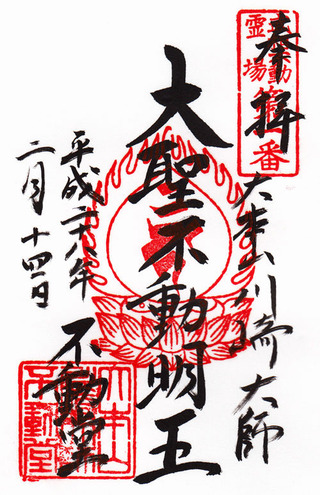 奉拝
大本山川崎大師
大聖不動明王
平成二十八年
二月十四日
不動堂
霊場
番
大本山
不動堂